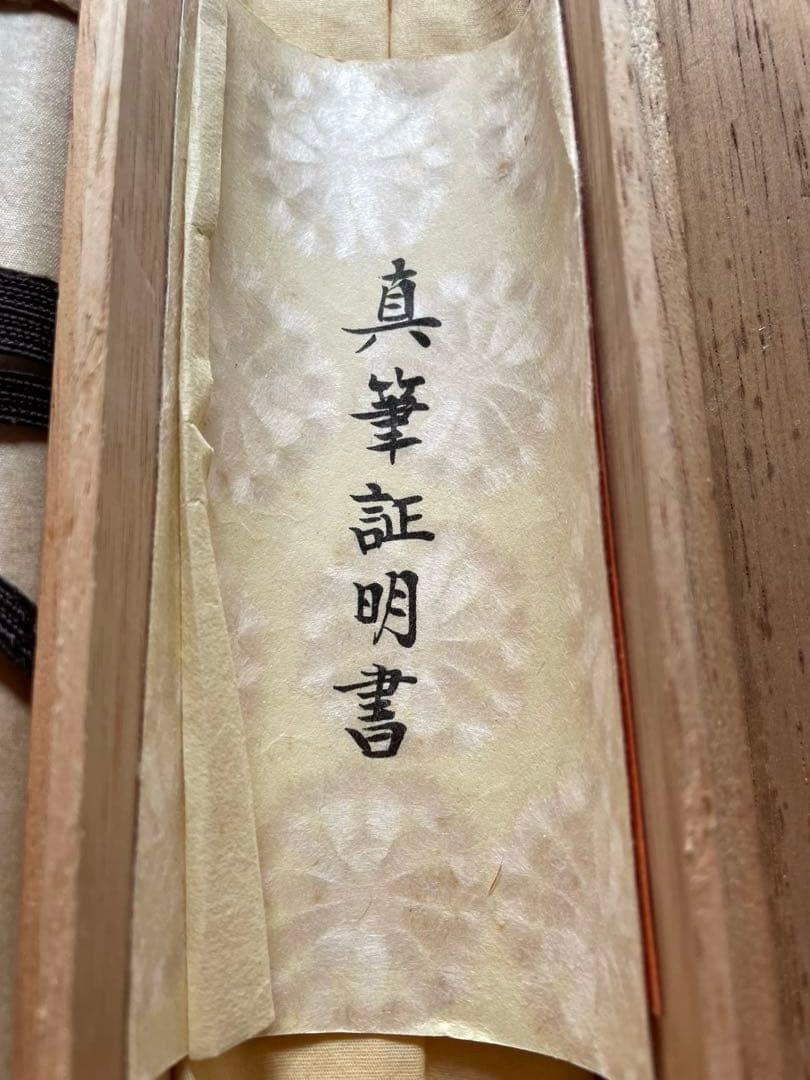 真筆証明書